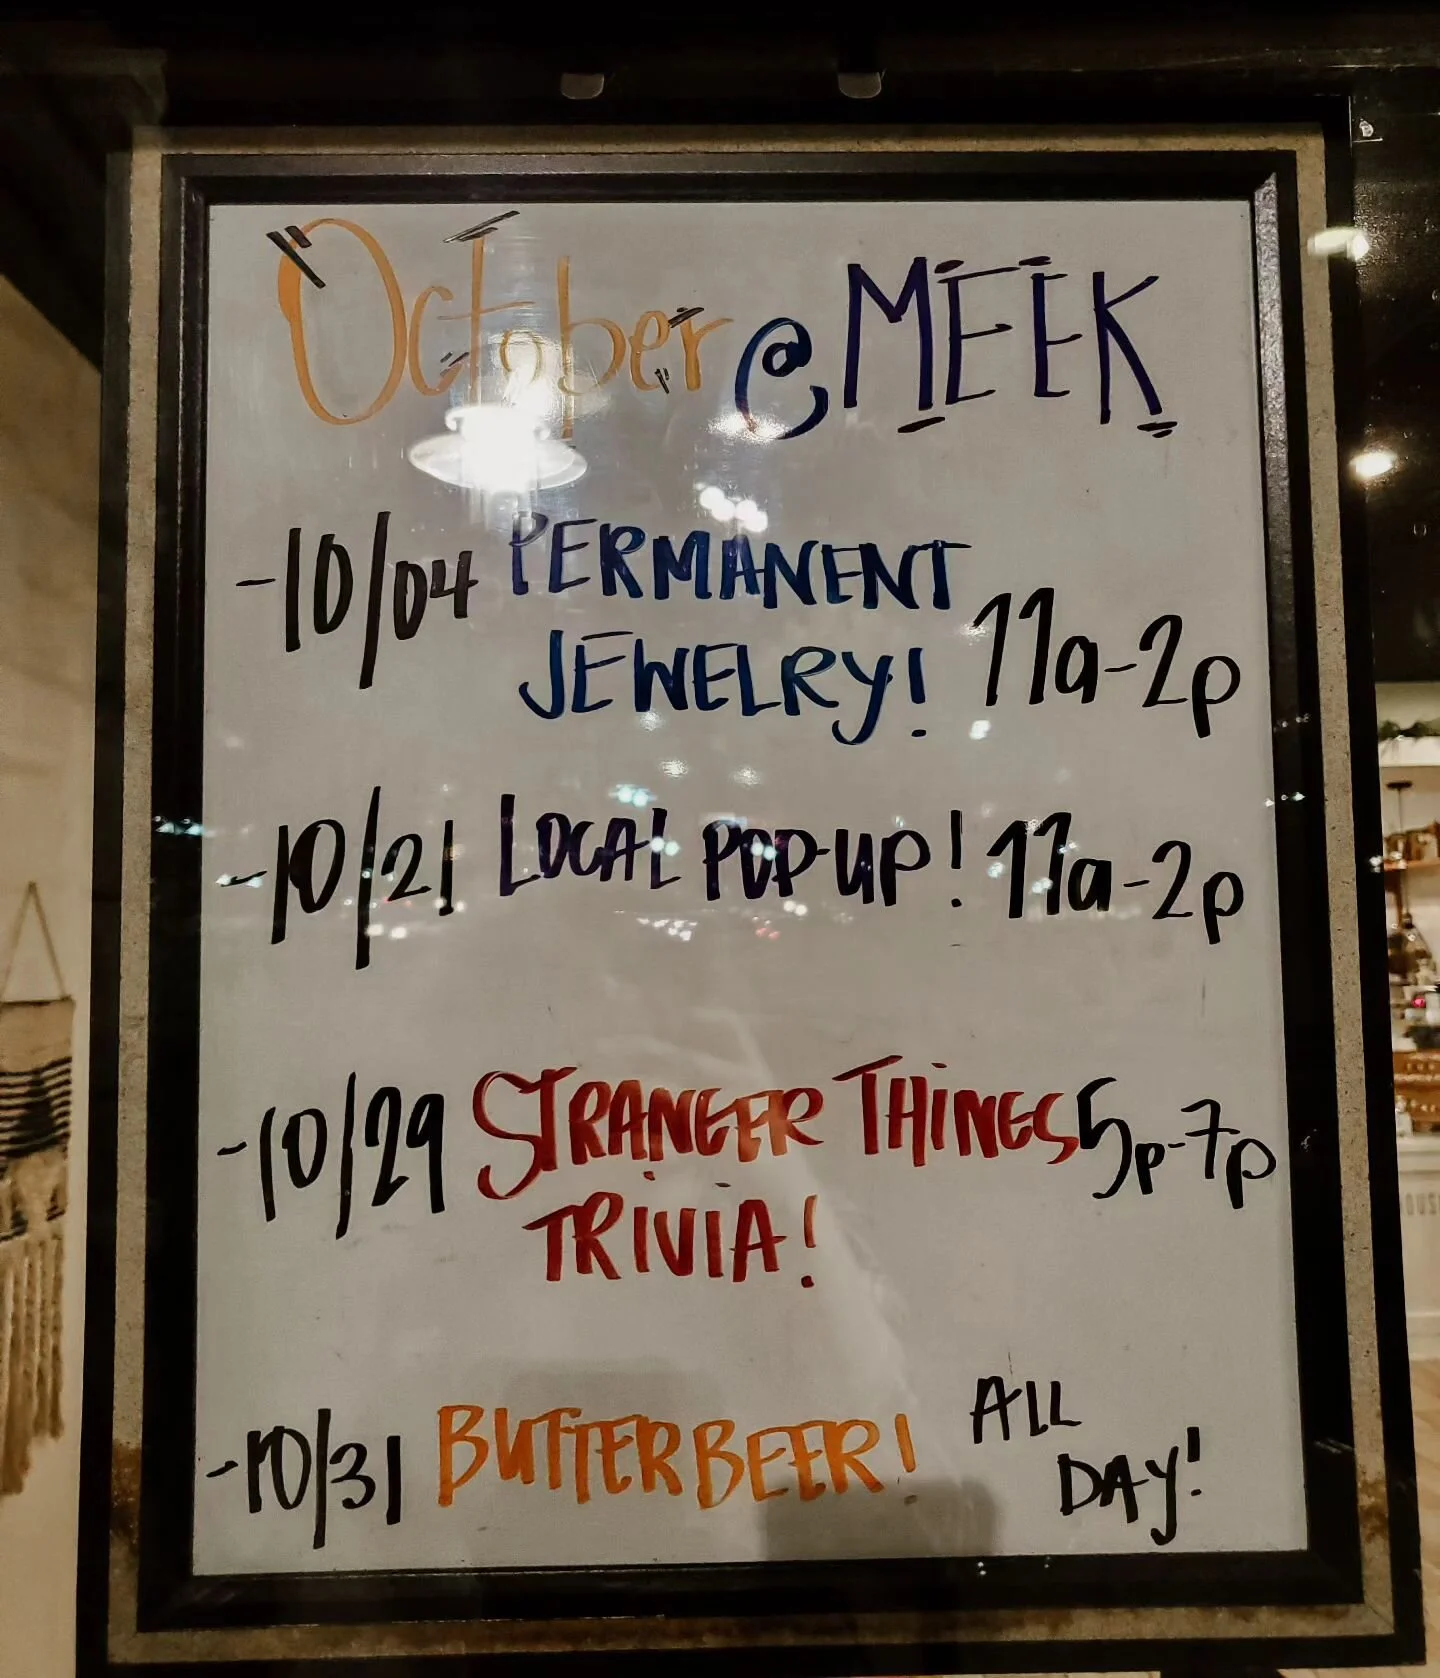 October @ MEEK
-10/04 PERMANENT
JEWELRY! 11a-2p
-10/21 LOCAL POP-UP! 11a-2p
-10/29 STRANGER THINGS 5p-7p
TRIVIA!
-10/31 BUTTERBEER! ALL
DAY!